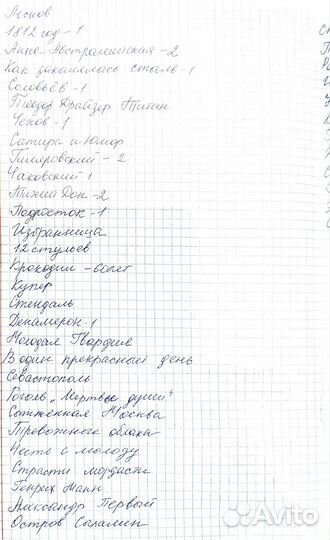 Лесков
1812 год - 1
Анно-Австралийская - 2
Как закалялась сталь - 1
Соловьёв - 1
Теодор Драйзер Титан
Чехов - 1
Сатира и Юмор
Писаровский - 2
Чаковский 1
Тихий Дон - 2
Подросток - 1
Избранница
12 стульев
Крокодил -
Купер
Стендаль
Декамерон - 1
Молодая Гвардия
В один прекрасный день
Севастополь
Гоголь „Мертвые души"
Сожжённая Москва
Тревожные облака
Честь с молоду
Страсти мордасти
Генрих Манн
Александр Первый
Остров Саламин
Avito